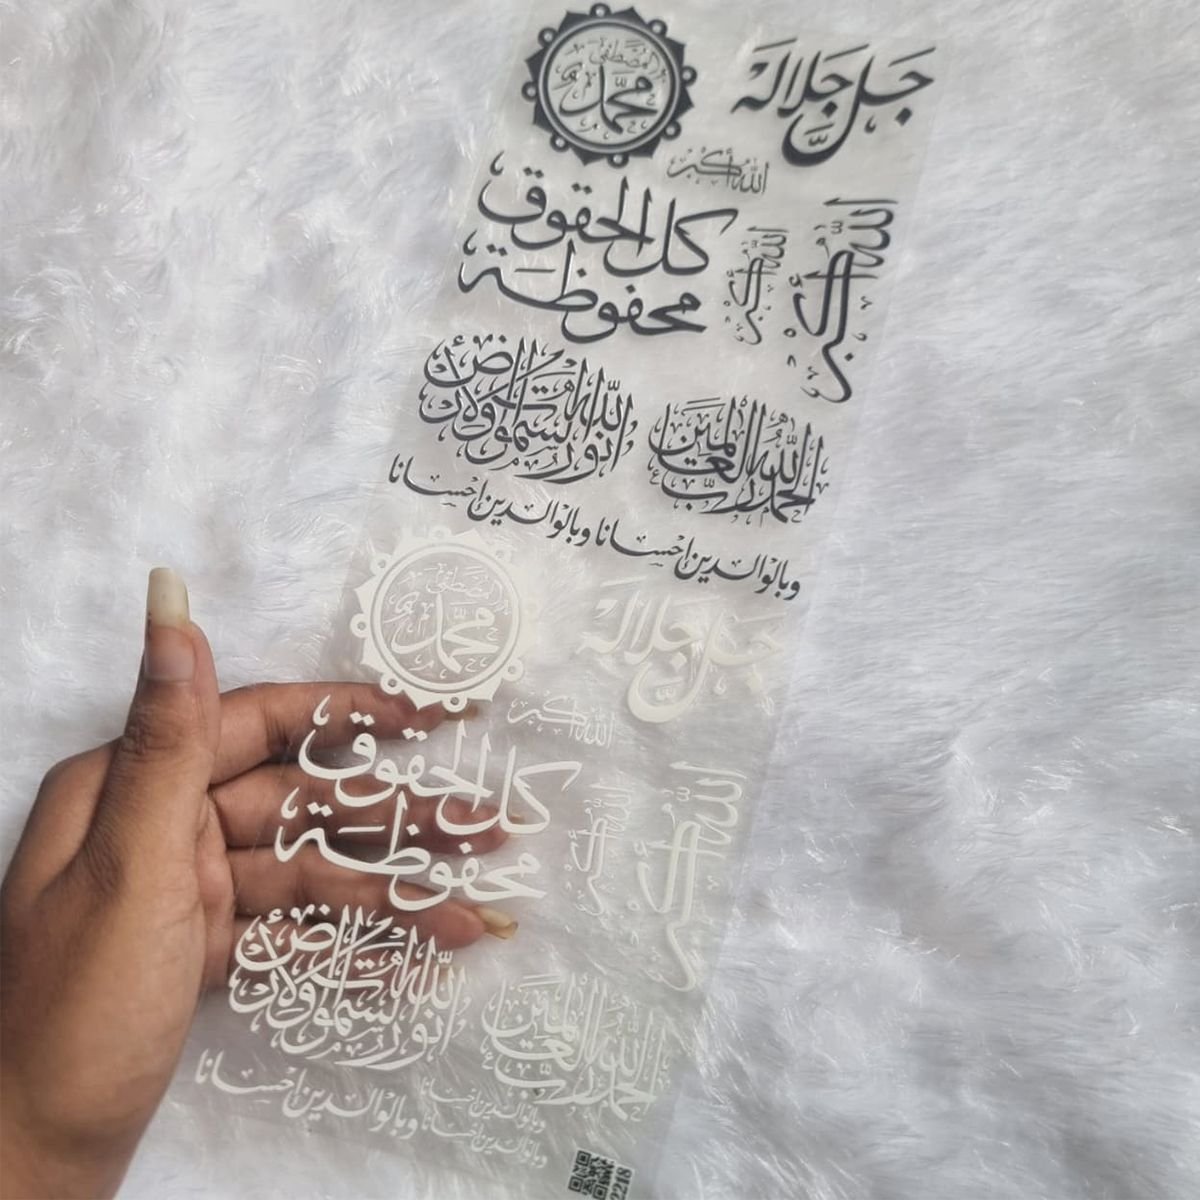 المصطفى
محمد
جل جلاله
الله أكبر
كل الحقوق
محفوظة
الله أكبر
الله أكبر
الله نور السموات والارض
الحمد لله رب العالمين
وبالوالدين احسانا وبالوالدين احسانا
المصطفى
محمد
جل جلاله
الله أكبر
كل الحقوق
محفوظة
الله أكبر
الله أكبر
الله نور السموات والارض
الحمد لله رب العالمين
وبالوالدين احسانا
وبالوالدين احسانا
وبالوالدين احسانا
2218